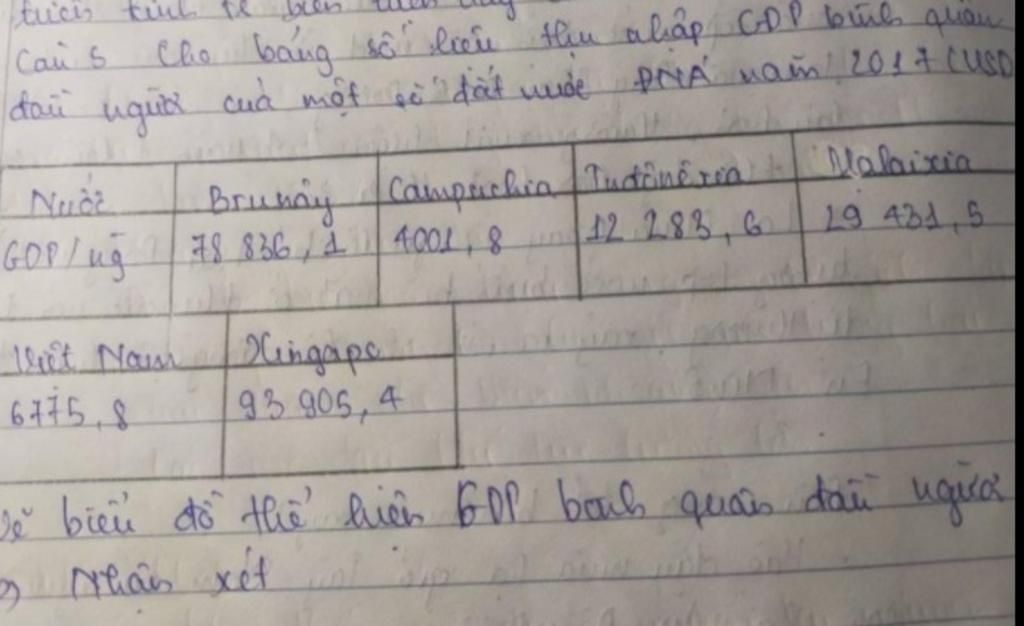 Câu 5 Cho bảng số liệu thu nhập GDP bình quân
đầu người của một số đất nước ĐNÁ năm 2017 (USD
Nước Brunây Campuchia Inđônêxia Malaixia
GDP/ng 78 836,1 4001,8 12 283,6 29 431,5
Việt Nam Xingapo
6775,8 93 905,4
vẽ biểu đồ thể hiện GDP bình quân đầu người
Nhận xét